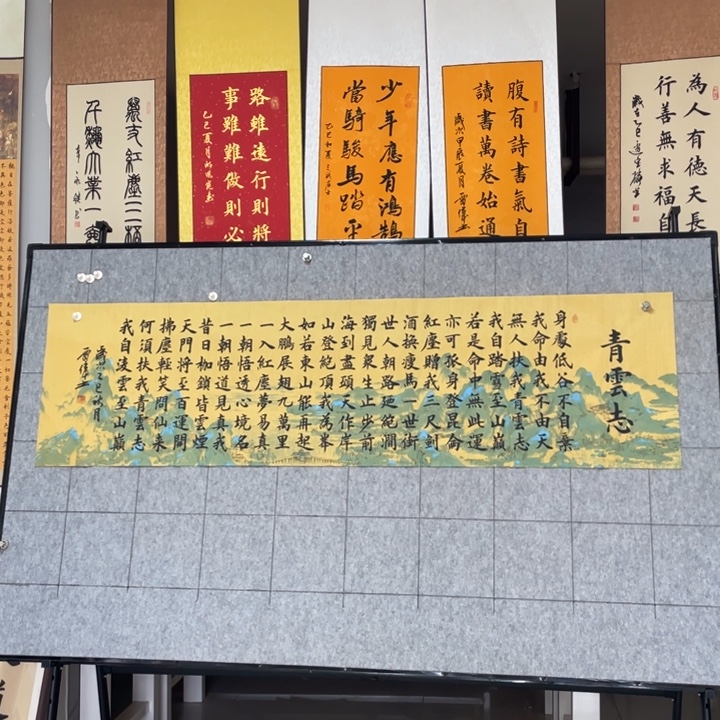 為人有德天長
行善無求福自
歲在乙巳
腹有詩書氣自
讀書萬卷始通
歲次甲辰夏月
少年應有鴻鵠
當騎駿馬踏平
乙巳初夏
路雖遠行則將
事雖難做則必
乙巳夏月
萬丈紅塵三杯
千龝大業一壺
青雲志
身處低谷不自棄
我命由我不由天
無人扶我青雲志
我自踏雲至山巔
若是命中無此運
亦可孤身登崑崙
紅塵贈我三尺劍
酒換瘦馬一世街
世人朝路廻絕澗
獨見眾生止步前
海到盡頭天作岸
山登絕頂我為峯
如若東山能再起
大鵬展翅九萬里
一入紅塵夢易真
一朝悟透心境名
一朝悟道見真我
昔日枷鎖皆雲煙
天門將至百運間
拂塵輕笑問仙来
何須扶我青雲志
我自凌雲至山巔
歲次乙巳秋月